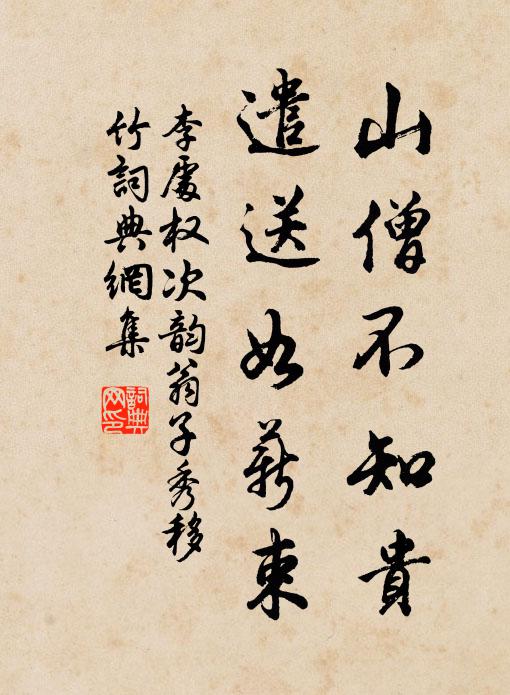 山僧不知貴
遣送如薪束
李處权次韵翁子秀移
竹詞典網集
詞典
网印